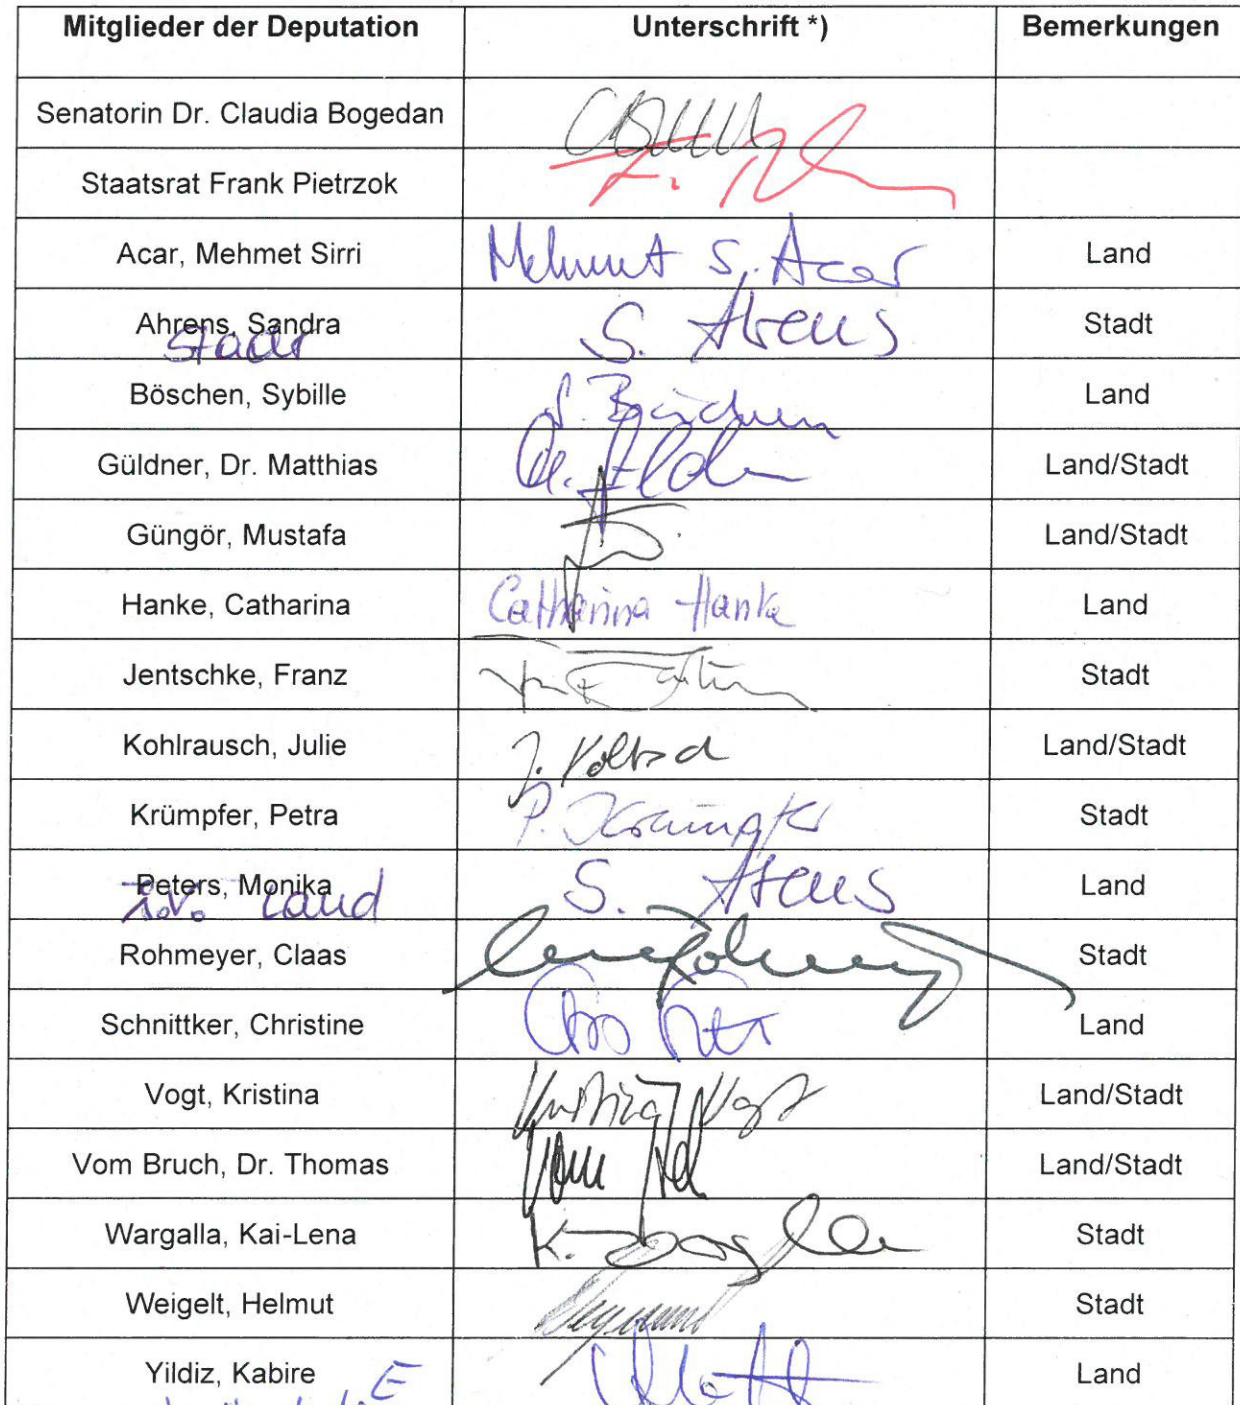 Mitglieder der Deputation Unterschrift *) Bemerkungen
Senatorin Dr. Claudia Bogedan
Staatsrat Frank Pietrzok
Acar, Mehmet Sirri Mehmet S. Acar Land
Ahrens, Sandra S. Ahrens Stadt
Stadt
Böschen, Sybille S. Böschen Land
Güldner, Dr. Matthias Land/Stadt
Güngör, Mustafa Land/Stadt
Hanke, Catharina Catharina Hanke Land
Jentschke, Franz Stadt
Kohlrausch, Julie Land/Stadt
Krümpfer, Petra P. Krümpfer Stadt
Peters, Monika S. Ahrens Land
i.V. Land
Rohmeyer, Claas Stadt
Schnittker, Christine Land
Vogt, Kristina Kristina Vogt Land/Stadt
Vom Bruch, Dr. Thomas Land/Stadt
Wargalla, Kai-Lena Stadt
Weigelt, Helmut Stadt
Yildiz, Kabire Land